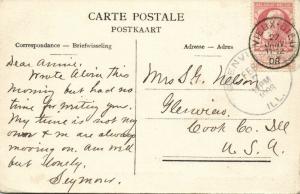 CARTE POSTALE
POSTKAART
Correspondance — Briefwisseling
Adresse — Adres
Dear Annie.
Wrote Alvin this
morning but had no
time for writing you.
My time is not my
own & m are always
moving on. Am well
but lonely.
Seymour.
Mrs S. G. Nelson
Glenview
Cook Co. Ill
U. S. A.
08
ILL.